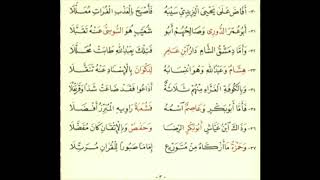 ٣٠- أَفَاضَ عَلَى يَحْيَى الْيَزِيدِيِّ سَيْبَهُ فَأَصْبَحَ بِالْعَذْبِ الْفُرَاتِ مُعَلَّلَا
٣١- أَبُو عُمَرَ الدُّورِي وَصَالِحُهُمْ أَبُو شُعَيْبٍ هُوَ السُّوسِيُّ عَنْهُ تَقَبَّلَا
٣٢- وَأَمَّا دِمَشْقُ الشَّامِ دَارُ ابْنِ عَامِرٍ فَتِلْكَ بِعَبْدِ اللهِ طَابَتْ مُحَلَّلَا
٣٣- هِشَامٌ وَعَبْدُ اللهِ وَهْوَ انْتِسَابُهُ لِذَكْوَانَ بِالْإِسْنَادِ عَنْهُ تَنَقَّلَا
٣٤- وَبِالْكُوفَةِ الْغَرَّاءِ مِنْهُمْ ثَلَاثَةٌ أَذَاعُوا فَقَدْ ضَاعَتْ شَذًا وَقَرَنْفُلَا
٣٥- فَأَمَّا أَبُو بَكْرٍ وَعَاصِمٌ اسْمُهُ فَشُعْبَةُ رَاوِيهِ الْمُبَرِّزُ أَفْضَلَا
٣٦- وَذَاكَ ابْنُ عَيَّاشٍ أَبُو بَكْرٍ الرِّضَا وَحَفْصٌ وَبِالْإِتْقَانِ كَانَ مُفَضَّلَا
٣٧- وَحَمْزَةُ مَا أَزْكَاهُ مِنْ مُتَوَرِّعٍ إِمَامًا صَبُورًا لِلْقُرَانِ مُرَتِّلَا